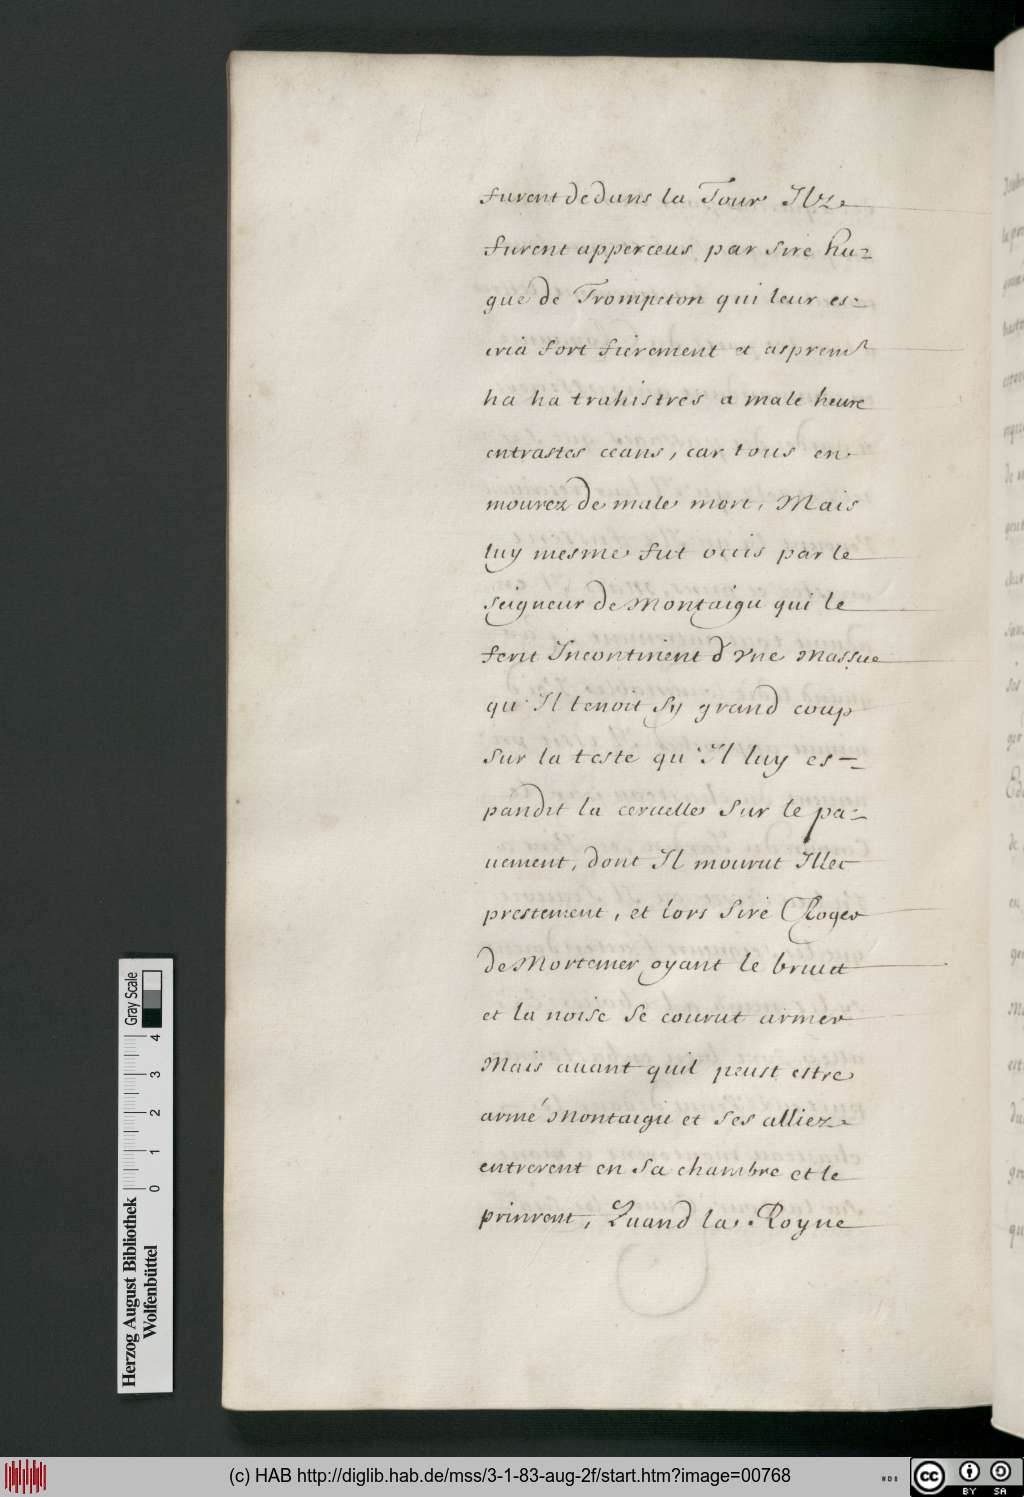 furent dedans la Tour Ilz
furent apperceus par sire hu-
gue de Trompeton qui leur es-
cria fort fierement et asprem̃t
ha ha trahistres a male heure
entrastes ceans, car tous en
mourez de male mort, Mais
luy mesme fut occis par le
seigneur de Montaigu qui le
ferit Incontinent d'vne Massue
qu'Il tenoit sy grand coup
sur la teste qu'Il luy es-
pandit la ceruelle sur le pa-
uement, dont Il mourut Illec
prestement, et lors sire Roger
de Mortemer oyant le bruict
et la noise se courut armer
Mais auant quil peust estre
armé Montaigu et ses alliez
entrerent en sa chambre et le
prinrent, Quand la Royne
Gray Scale
0 1 2 3 4
Herzog August Bibliothek
Wolfenbüttel
(c) HAB http://diglib.hab.de/mss/3-1-83-aug-2f/start.htm?image=00768
WDB
cc BY SA